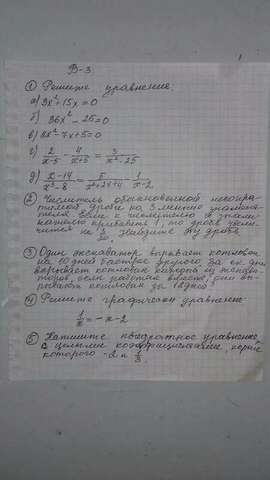 В-3.
① Решите уравнение:
а) 3x²+15x=0
б) 36x²-25=0
в) 8x²-7x+5=0
г) 2/(x-5) - 4/(x+5) = 3/(x²-25)
д) (x-14)/(x³-8) = 5/(x²+2x+4) - 1/(x-2)
② Числитель обыкновенной несокра-
тимой дроби на 3 меньше знамена-
теля. Если к числителю и знаме-
нателю прибавить 1, то дробь увели-
чится на Найдите эту дробь.
③ Один экскаватор вырывает котлован
на 10 дней быстрее второго. За сколько дней
вырывает котлован каждый из экскава-
торов, если, работая вместе, они вы-
рывают котлован за 12 дней?
④ Решите графически уравнение
1/x = -x-2
⑤ Напишите квадратное уравнение
с целыми коэффициентами, корни
которого -2 и 1/3.